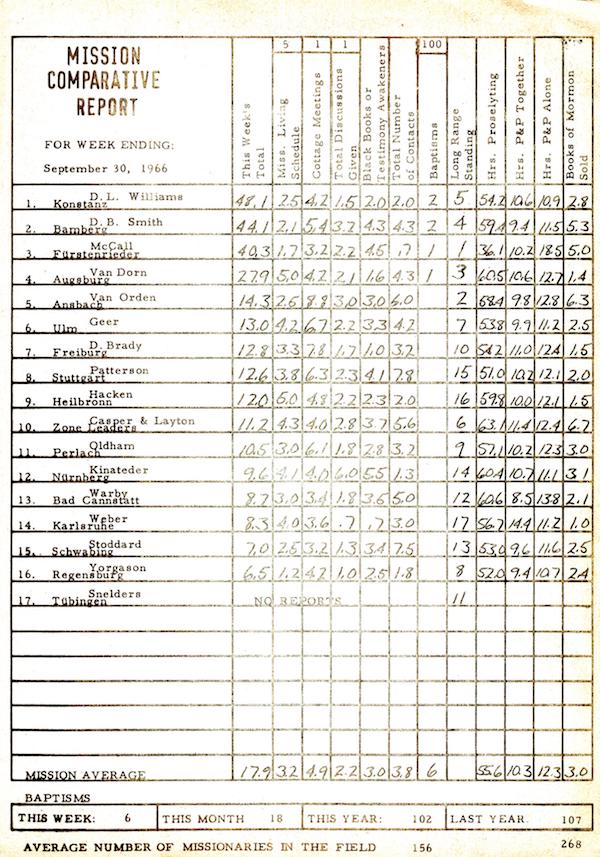 MISSION
COMPARATIVE
REPORT
FOR WEEK ENDING:
September 30, 1966
5 1 1 100
This Week's Total
Miss. Living Schedule
Cottage Meetings
Total Discussions Given
Black Books or Testimony Awakeners
Total Number of Contacts
Baptisms
Long Range Standing
Hrs. Proselyting
Hrs. P&P Together
Hrs. P&P Alone
Books of Mormon Sold
1. D.L. Williams Konstanz 48.1 2.5 4.2 1.5 2.0 2.0 2 5 54.2 10.6 10.9 2.8
2. D.B. Smith Bamberg 44.1 2.1 5.4 3.2 4.3 4.3 2 4 59.4 9.4 11.5 5.3
3. McCall Fürstenrieder 40.3 1.7 3.2 2.2 4.5 .7 1 1 36.1 10.2 18.5 5.0
4. Van Dorn Augsburg 27.9 5.0 4.2 2.1 1.6 4.3 1 3 60.5 10.6 12.7 1.4
5. Van Orden Ansbach 14.3 2.5 8.8 3.0 3.0 6.0 2 58.4 9.8 12.8 6.3
6. Geer Ulm 13.0 4.2 6.7 2.2 3.3 4.2 7 53.8 9.9 11.2 2.5
7. D. Brady Freiburg 12.8 3.3 7.8 1.7 1.0 3.2 10 54.2 11.0 12.4 1.5
8. Patterson Stuttgart 12.6 3.8 6.3 2.3 4.1 7.8 15 51.0 10.2 12.1 2.0
9. Hacken Heilbronn 12.0 5.0 4.8 2.2 2.3 2.0 16 59.8 10.0 12.1 1.5
10. Casper & Layton Zone Leaders 11.2 4.3 4.0 2.8 3.7 5.6 6 63.1 11.4 12.4 6.7
11. Oldham Perlach 10.5 3.0 6.1 1.8 2.8 3.2 9 57.1 10.2 12.3 3.0
12. Kinateder Nürnberg 9.6 4.1 4.0 6.0 5.5 1.3 14 60.4 10.7 11.1 3.1
13. Warby Bad Cannstatt 8.7 3.0 3.4 1.8 3.6 5.0 12 60.6 8.5 13.8 2.1
14. Weber Karlsruhe 8.3 4.0 3.6 .7 .7 3.0 17 56.7 14.4 11.2 1.0
15. Stoddard Schwabing 7.0 2.5 3.2 1.3 3.4 7.5 13 53.0 9.6 11.6 2.5
16. Yorgason Regensburg 6.5 1.2 4.2 1.0 2.5 1.8 8 52.0 9.4 10.7 2.4
17. Snelders Tübingen NO REPORTS 11
MISSION AVERAGE 17.9 3.2 4.9 2.2 3.0 3.8 6 55.6 10.3 12.3 3.0
BAPTISMS
THIS WEEK: 6 THIS MONTH 18 THIS YEAR: 102 LAST YEAR. 107
AVERAGE NUMBER OF MISSIONARIES IN THE FIELD 156 268